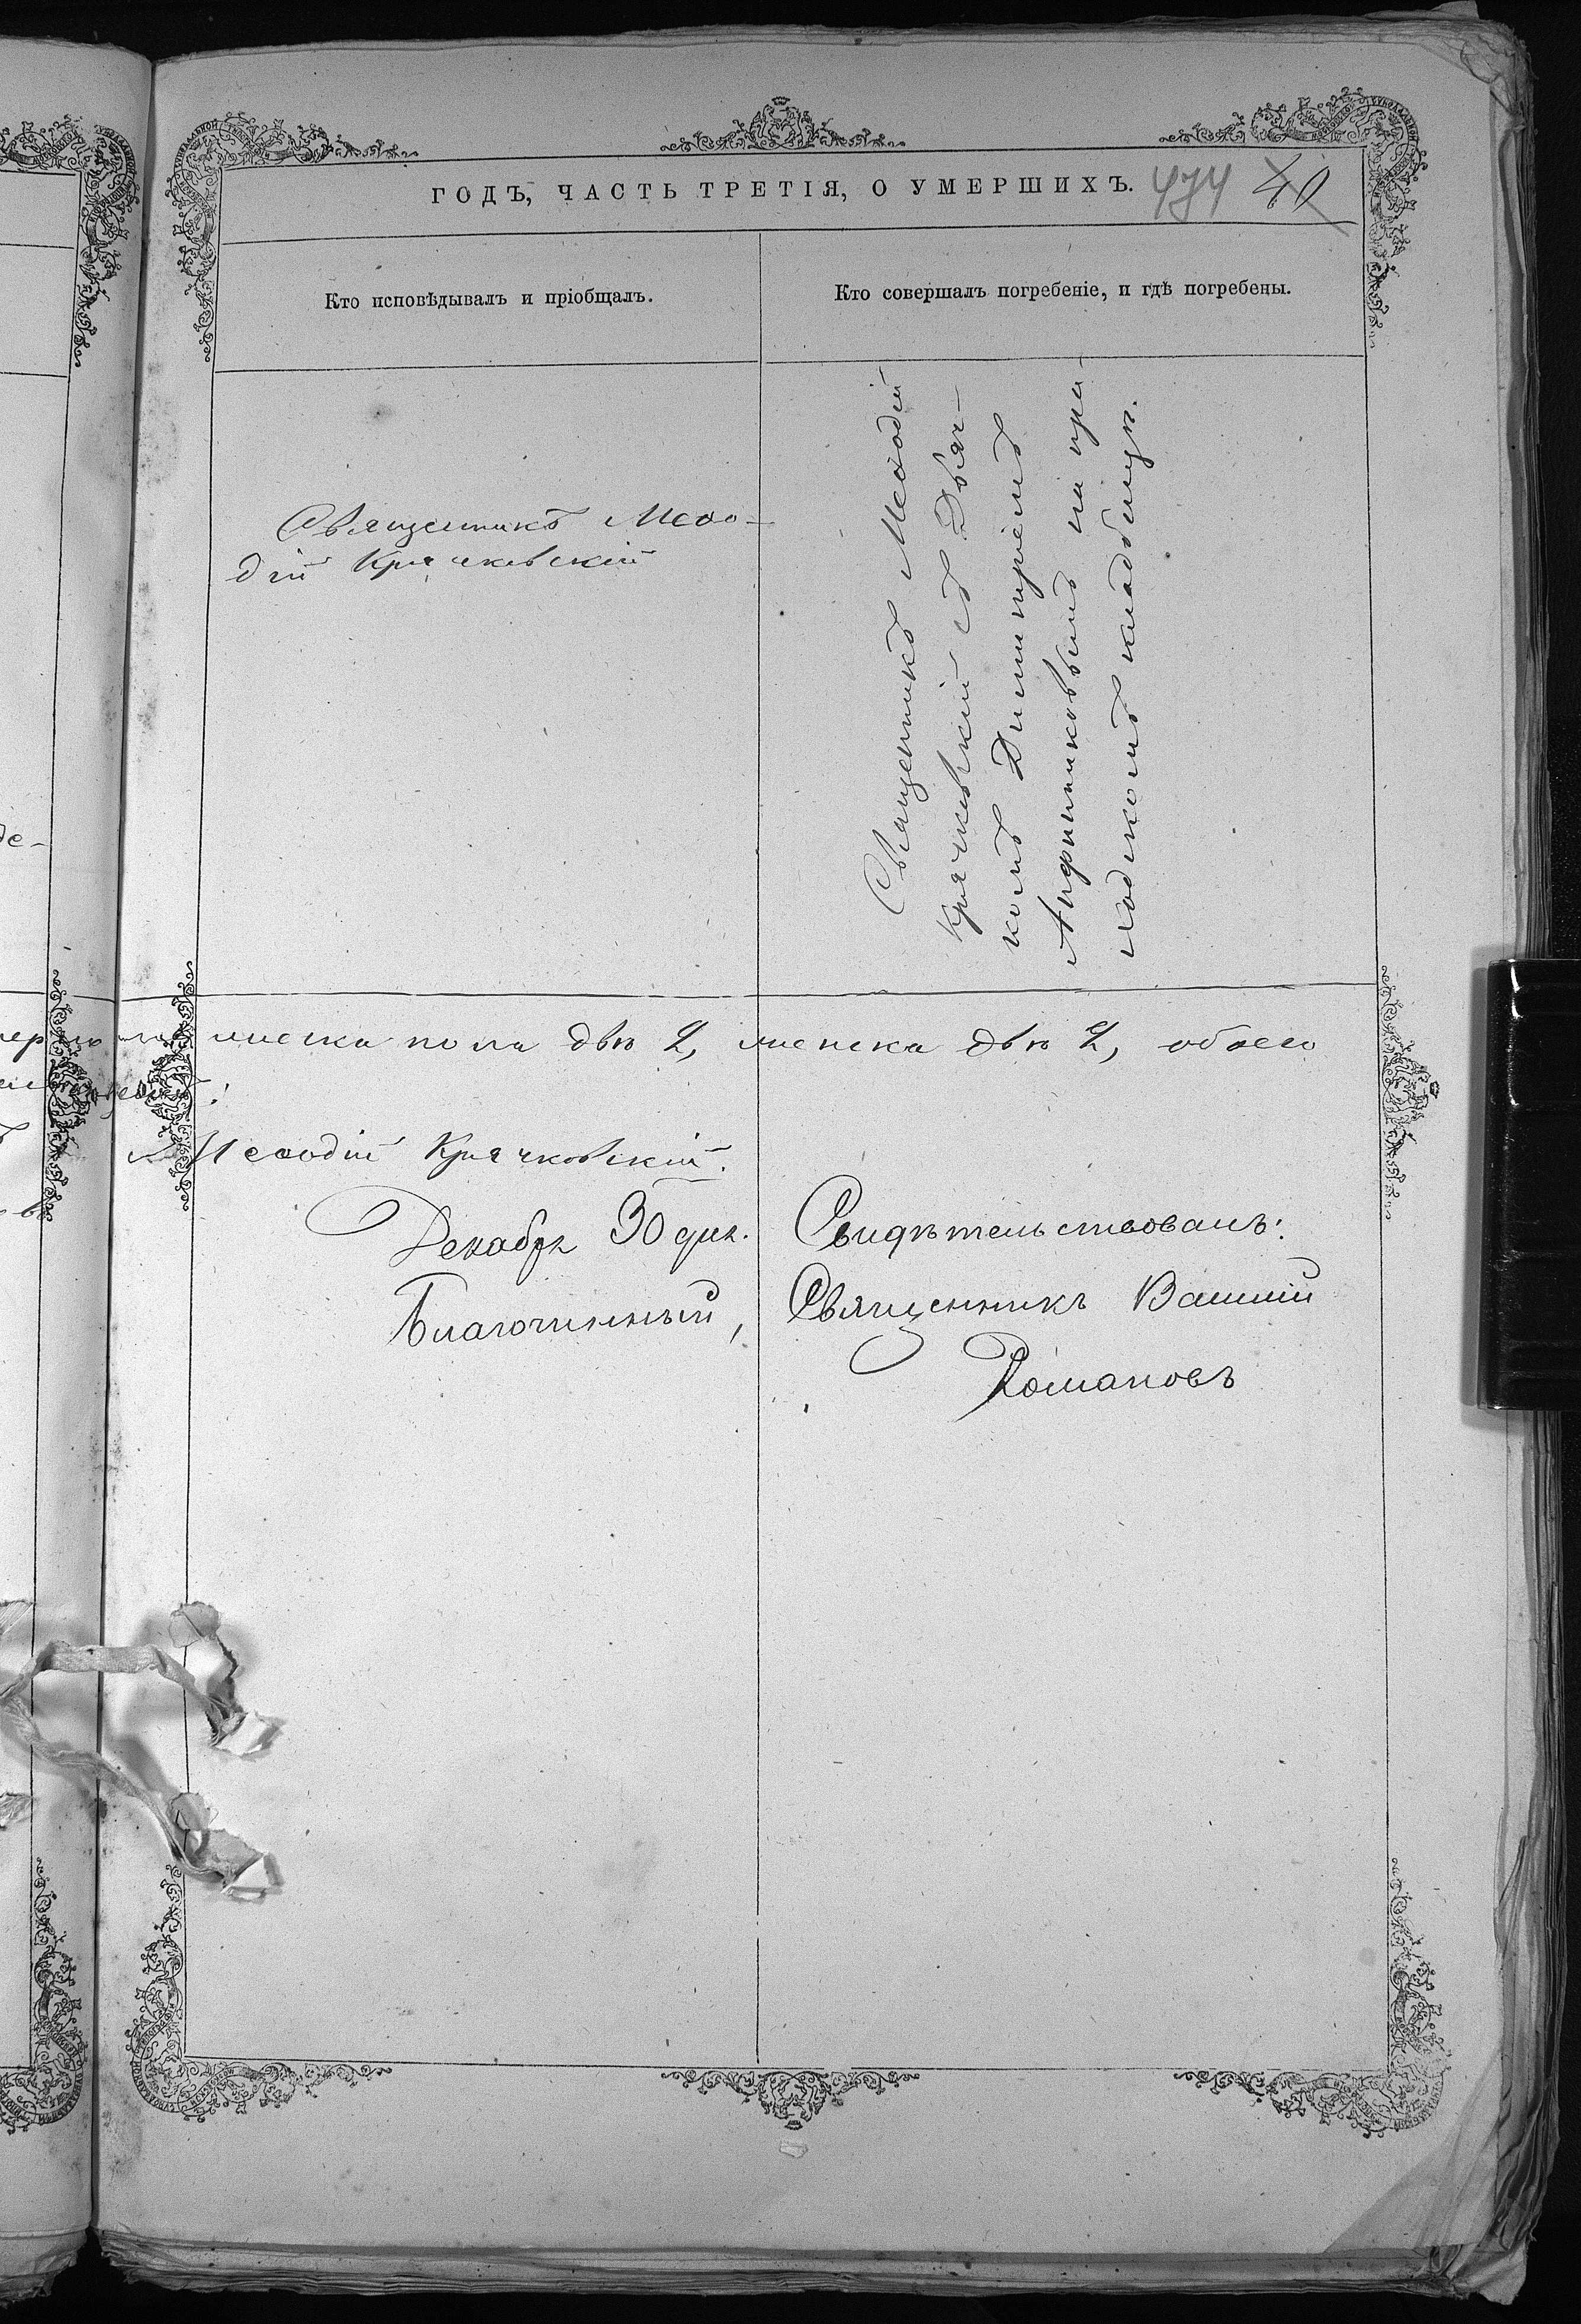 ГОДЪ, ЧАСТЬ ТРЕТІЯ, О УМЕРШИХЪ. 474 40
Кто исповѣдывалъ и пріобщалъ.
Кто совершалъ погребеніе, и гдѣ погребены.
Священникъ Меѳо-
дій Крячковскій
Священникъ Меѳодій
Крячковскій съ Дьяч-
комъ Димитріемъ
на при-
ходскомъ кладбищѣ.
мужска пола два 2, женска двѣ 2, обоего
Меѳодій Крячковскій.
Декабря 30 дня. Свидѣтельствовалъ:
Благочинный, Священникъ Василій
Романовъ